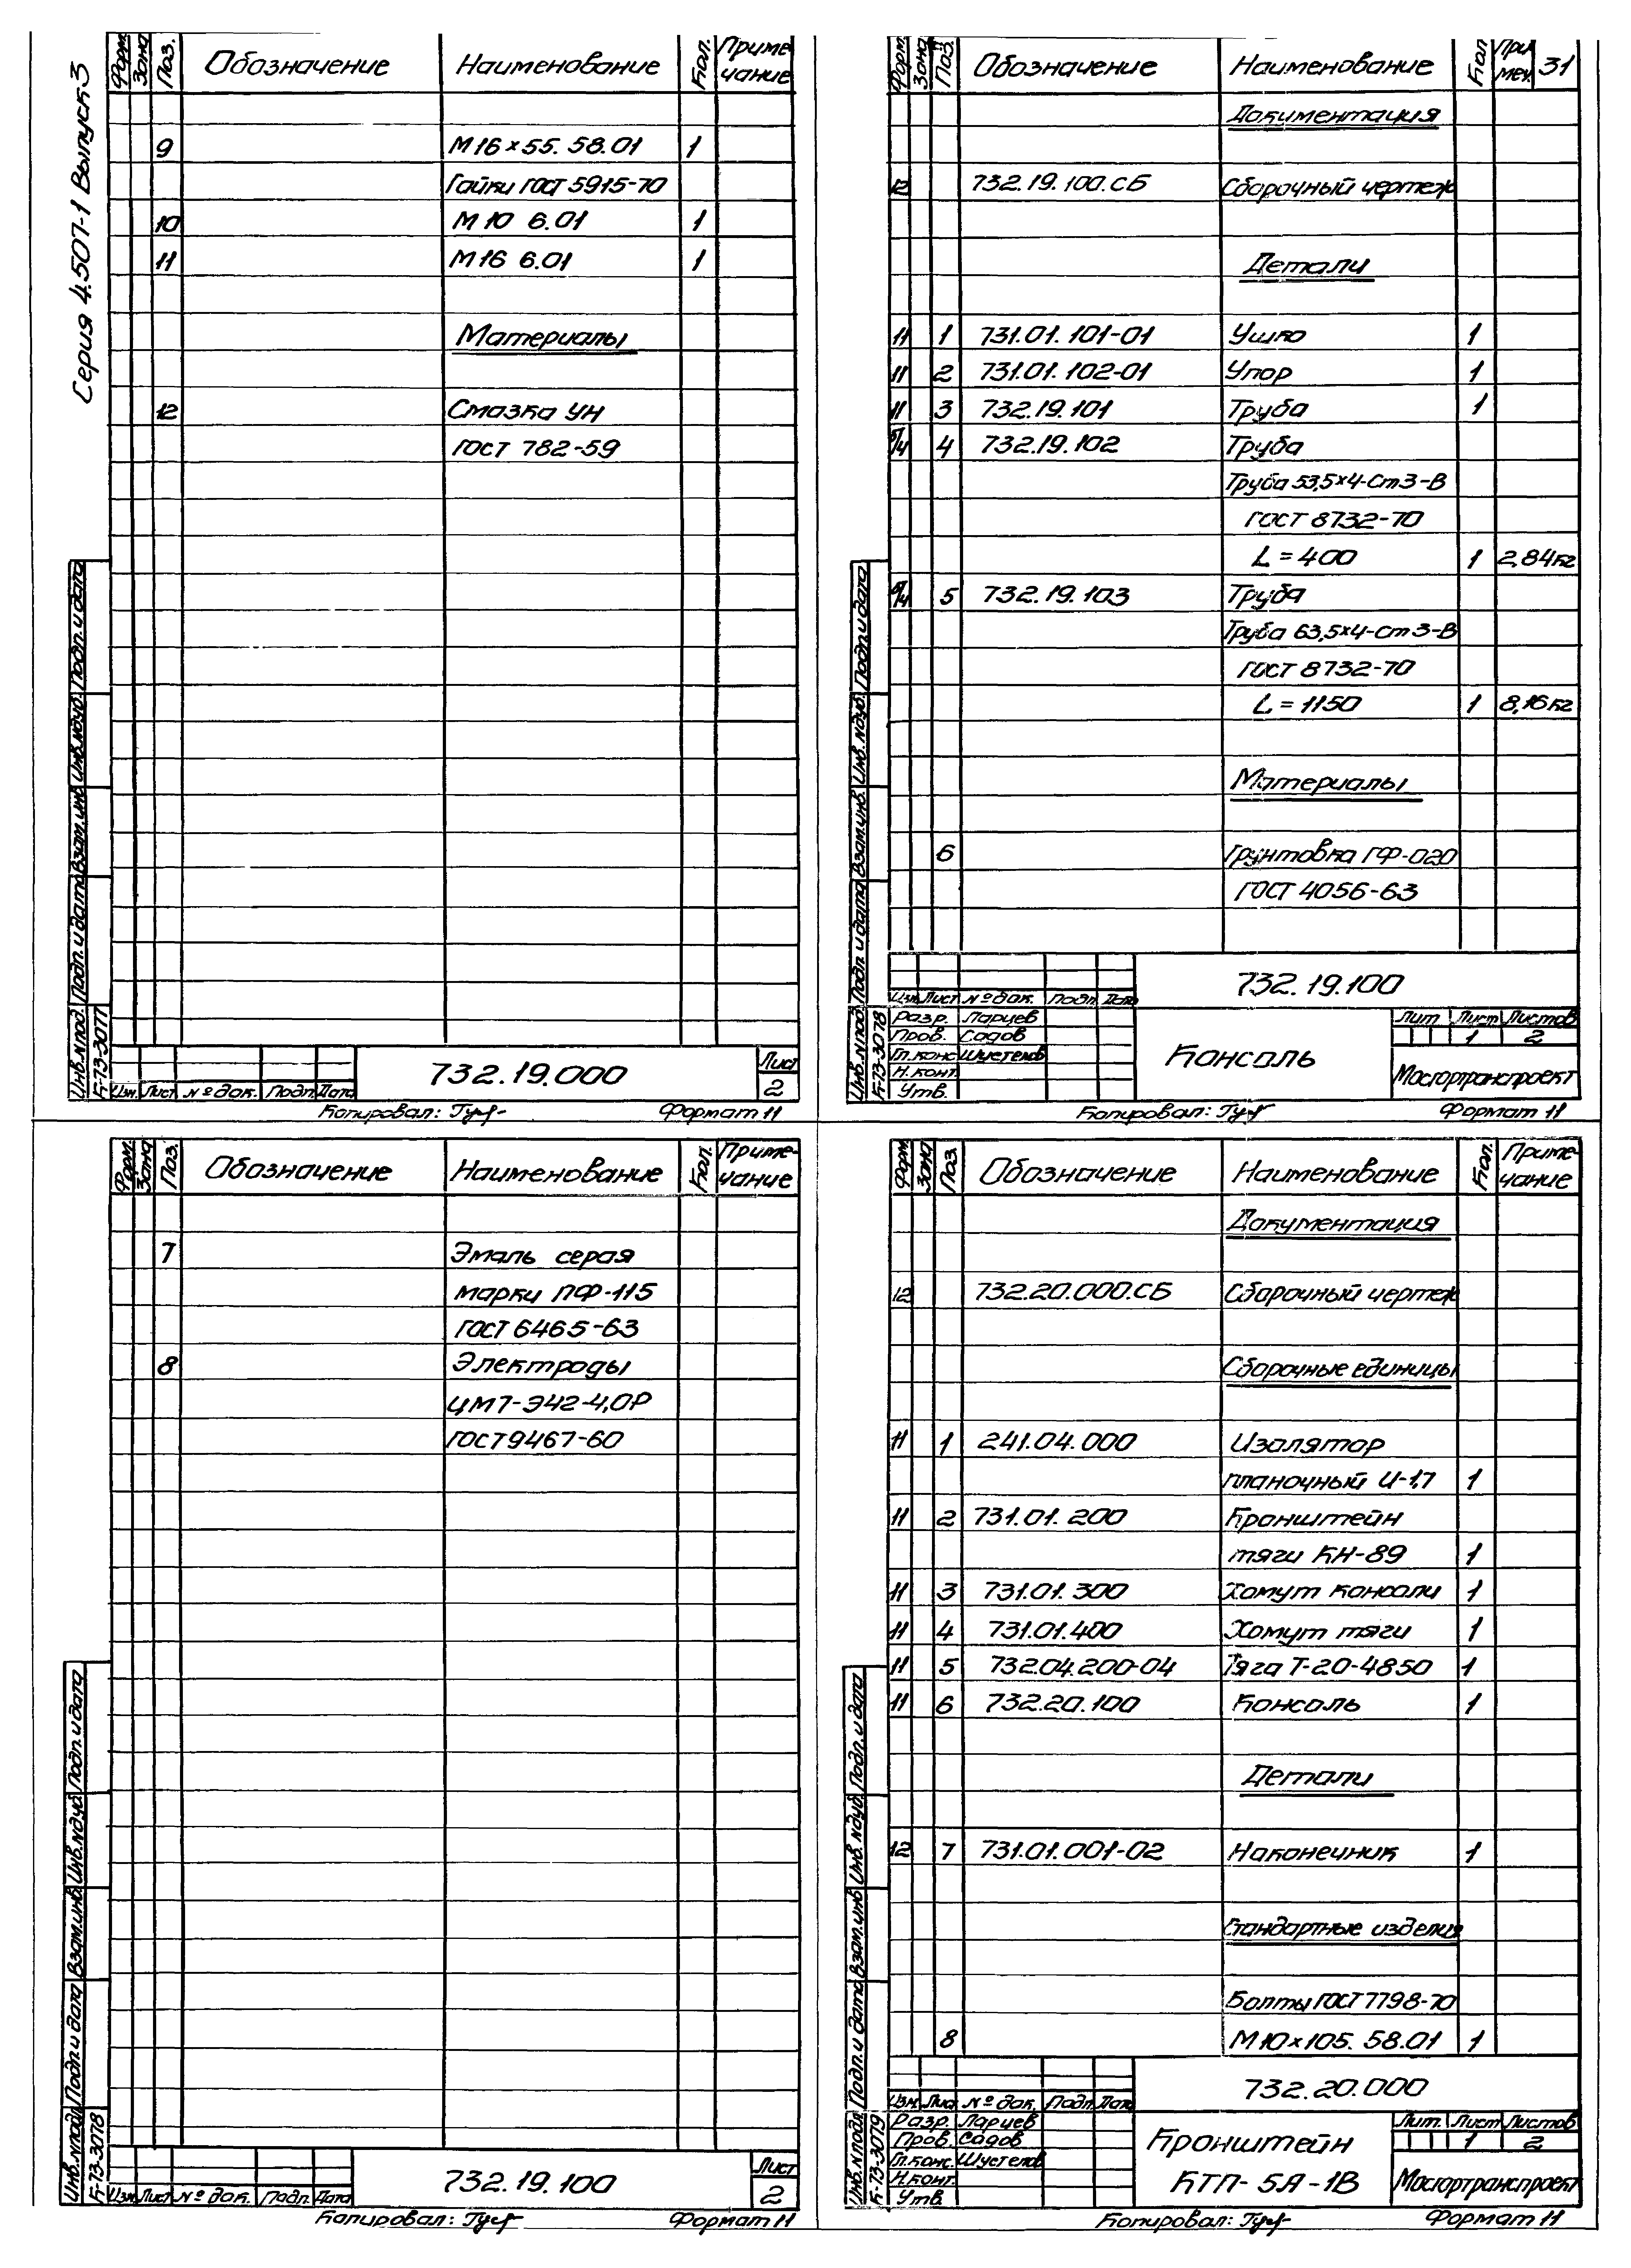 Серия 4.507-1 Выпуск 3
Форм. Зона Поз. Обозначение Наименование Кол. Приме-
чание
9 М16×55.58.01 1
Гайки ГОСТ 5915-70
10 М10 6.01 1
11 М16 6.01 1
Материалы
12 Смазка УН
ГОСТ 782-59
Инв.№подл. Подп. и дата Взам.инв. Инв.№дуб. Подп. и дата
Б-73-3077
Изм. Лист № док. Подп. Дата
732.19.000
Лист
2
Копировал:
Формат 11
Форм. Зона Поз. Обозначение Наименование Кол При
меч. 31
Документация
12 732.19.100.СБ Сборочный чертеж
Детали
11 1 731.01.101-01 Ушко 1
11 2 731.01.102-01 Упор 1
11 3 732.19.101 Труба 1
б/ч 4 732.19.102 Труба
Труба 53,5×4-Ст3-В
ГОСТ 8732-70
L=400 1 2,84кг
б/ч 5 732.19.103 Труба
Труба 63,5×4-Ст3-В
ГОСТ 8732-70
L=1150 1 8,16кг
Материалы
6 Грунтовка ГФ-020
ГОСТ 4056-63
Инв.№подл. Подп. и дата Взам.инв. Инв.№дуб. Подп. и дата
Б-73-3078
732.19.100
Изм. Лист № док. Подп. Дата
Разр. Ларцев
Пров. Садов
Гл.конс. Шустелов
Н.конт.
Утв.
Консоль
Лит Лист Листов
1 2
Мосгортранспроект
Копировал:
Формат 11
Форм. Зона Поз. Обозначение Наименование Кол. Приме-
чание
7 Эмаль серая
марки ПФ-115
ГОСТ 6465-63
8 Электроды
ЦМ7-Э42-4,0Р
ГОСТ 9467-60
Инв.№подл. Подп. и дата Взам.инв. Инв.№дуб. Подп. и дата
Б-73-3078
Изм. Лист № док. Подп. Дата
732.19.100
Лист
2
Копировал:
Формат 11
Форм. Зона Поз. Обозначение Наименование Кол. Приме-
чание
Документация
12 732.20.000.СБ Сборочный чертеж
Сборочные единицы
11 1 241.04.000 Изолятор
планочный И-1,7 1
11 2 731.01.200 Кронштейн
тяги КН-89 1
11 3 731.01.300 Хомут консоли 1
11 4 731.01.400 Хомут тяги 1
11 5 732.04.200-04 Тяга Т-20-4850 1
11 6 732.20.100 Консоль 1
Детали
12 7 731.01.001-02 Наконечник 1
Стандартные изделия
Болты ГОСТ 7798-70
8 М10×105.58.01 1
Инв.№подл. Подп. и дата Взам.инв. Инв.№дуб. Подп. и дата
Б-73-3079
732.20.000
Изм. Лист № док. Подп. Дата
Разр. Ларцев
Пров. Садов
Гл.конс. Шустелов
Н.конт.
Утв.
Кронштейн
КТП-5А-1В
Лит. Лист Листов
1 2
Мосгортранспроект
Копировал:
Формат 11